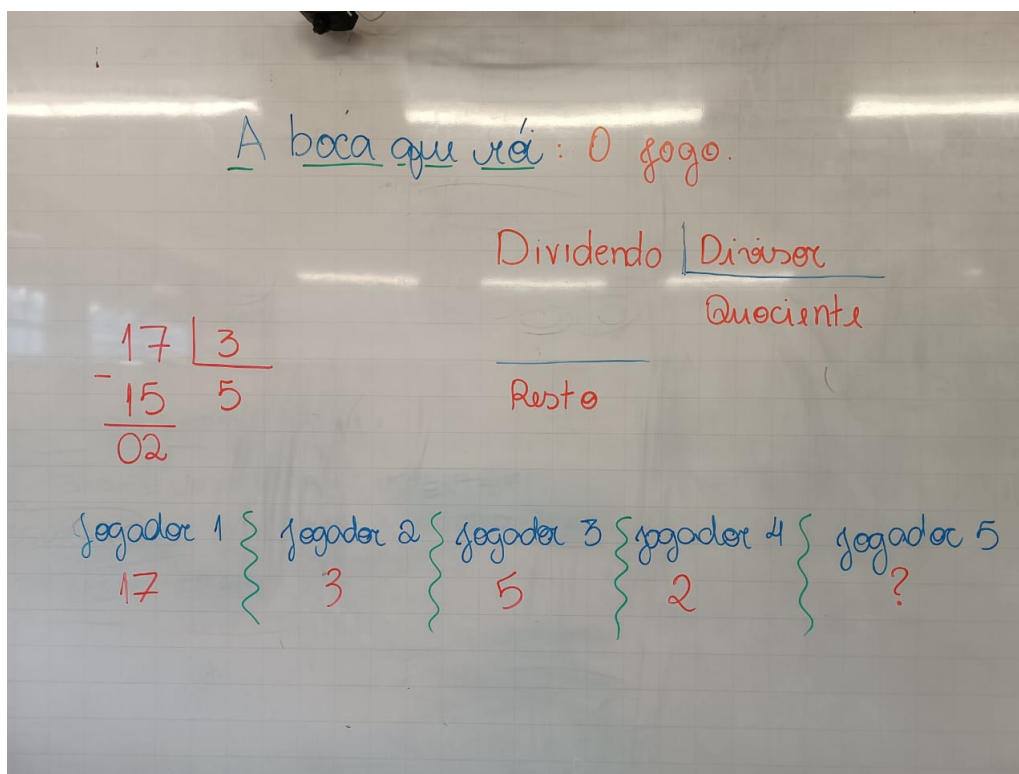 A boca que rói: O jogo.
Dividendo Divisor
Quociente
Resto
17 3
- 15 5
02
Jogador 1 Jogador 2 Jogador 3 Jogador 4 Jogador 5
17 3 5 2 ?